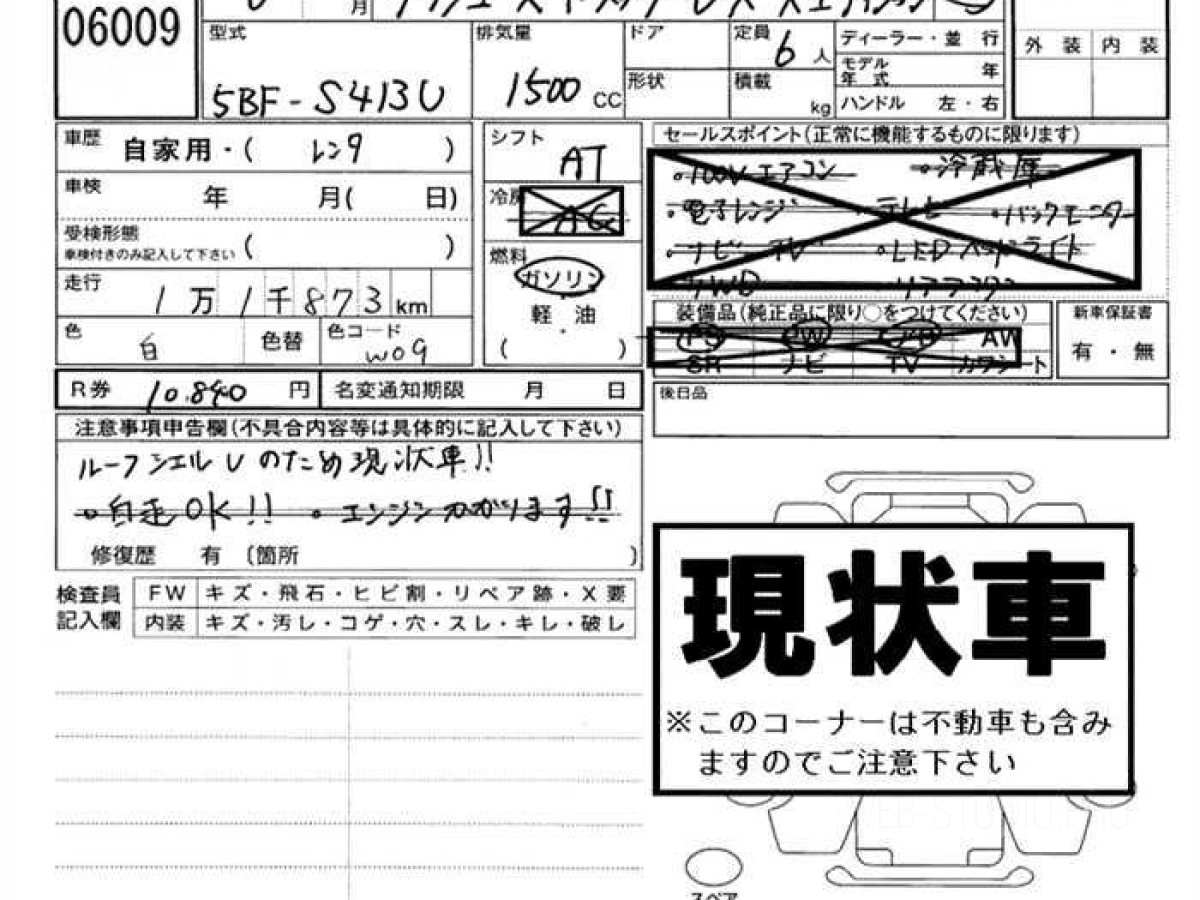 06009
月
型式
5BF-S413U
排気量
1500 CC
ドア
形状
定員
6 人
積載
kg
ディーラー・並 行
モデル
年 式 年
ハンドル 左・右
外 装 内 装
車歴 自家用・( レンタ )
車検 年 月( 日)
受検形態
車検付きのみ記入して下さい ( )
走行
1万1千873 km
色 白
色替
色コード
W09
シフト
AT
冷房
AC
燃料
ガソリン
軽 油
( )
セールスポイント(正常に機能するものに限ります)
・100V エアコン ・冷蔵庫
・電子レンジ ・テレビ ・バックモニター
・ナビ・TV ・LEDヘッドライト
装備品(純正品に限り○をつけてください)
PS PW AB AW
SR ナビ TV カワシート
新車保証書
有・無
R券 10.840 円
名変通知期限 月 日
後日品
注意事項申告欄(不具合内容等は具体的に記入して下さい)
ルーフシェルUのため現状車!!
・自走OK!! ・エンジンかかります!!
修復歴 有 (箇所 )
検査員
記入欄
FW キズ・飛石・ヒビ割・リペア跡・X要
内装 キズ・汚レ・コゲ・穴・スレ・キレ・破レ
現状車
※このコーナーは不動車も含み
ますのでご注意下さい
スペア